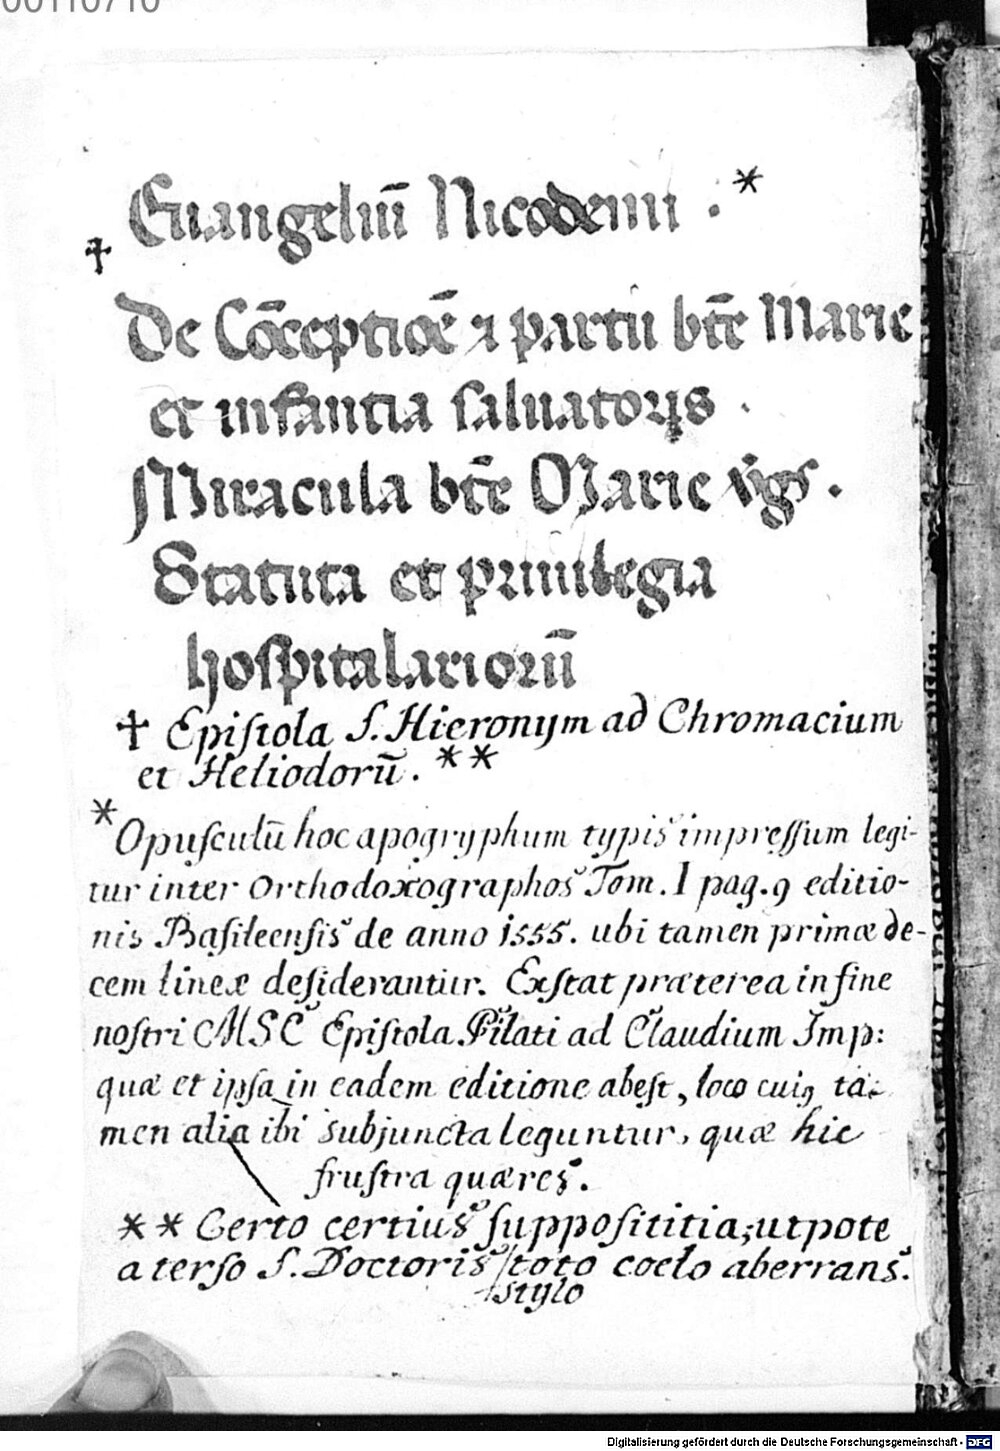 Euangeliū Nicodemi . *
†
De Cōceptiōe ⁊ partu btē Marie
et infantia saluatoris .
Miracula btē Marie v̄gs .
Statuta et priuilegia
hospitalariorū
† Epiſtola S. Hieronym ad Chromacium
et Heliodorū . **
* Opuſculū hoc apogryphum typis impreſſum legi-
tur inter Orthodoxographos Tom. I pag. 9 editio-
nis Baſileenſis de anno 1555. ubi tamen primæ de-
cem lineæ deſiderantur. Exſtat præterea in fine
noſtri MSC Epiſtola Pilati ad Claudium Imp:
quæ et ipſa in eadem editione abeſt, loco cuiꝯ ta-
men alia ibi subjuncta leguntur, quæ hic
fruſtra quæres.
** Certo certius ſuppoſititia, utpote
a terſo S. Doctoris toto coelo aberrans.
stylo
Digitalisierung gefördert durch die Deutsche Forschungsgemeinschaft - DFG